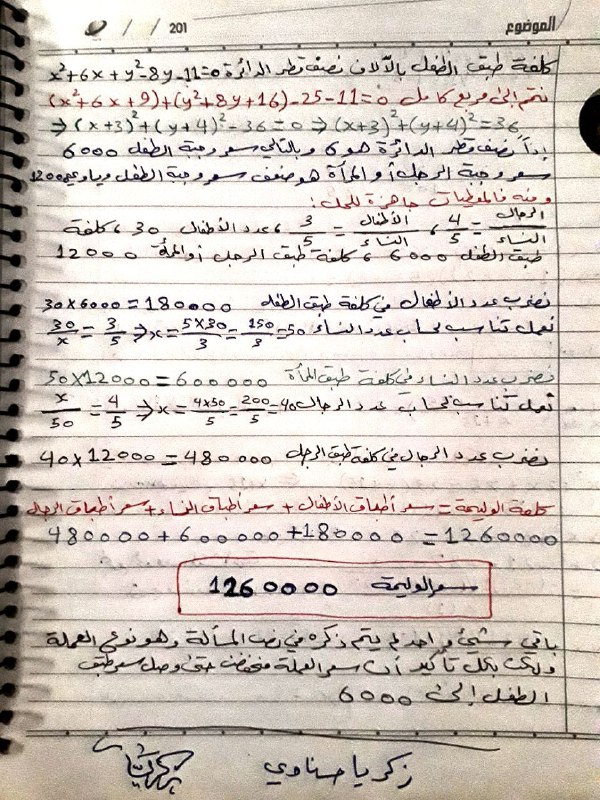 الموضوع / / 201
كلفة طبق الطفل بالآلاف نصف قطر الدائرة x²+6x+y²-8y-11=0
نتمم إلى مربع كامل (x²+6x+9)+(y²+8y+16)-25-11=0
⇒(x+3)²+(y+4)²-36=0⇒(x+3)²+(y+4)²=36
إذاً نصف قطر الدائرة هو 6 وبالتالي سعر وجبة الطفل 6000
سعر وجبة الرجل أو المرأة هو ضعف سعر وجبة الطفل ويساوي 12000
ومنه فالمعطيات جاهزة للحل:
الرجال/النساء = 4/5 ، الأطفال/النساء = 3/5 ، عدد الأطفال 30 ، كلفة
طبق الطفل 6000 ، كلفة طبق الرجل أو المرأة 12000
نضرب عدد الأطفال في كلفة طبق الطفل 30x6000=180000
نعمل تناسب لحساب عدد النساء 30/x=3/5⇒x=5x30/3=150/3=50
نضرب عدد النساء في كلفة طبق المرأة 50x12000=600000
نعمل تناسب لحساب عدد الرجال x/50=4/5⇒x=4x50/5=200/5=40
نضرب عدد الرجال في كلفة طبق الرجل 40x12000=480000
كلفة الوليمة = سعر أطباق الأطفال + سعر أطباق النساء + سعر أطباق الرجال
480000+600000+180000=1260000
سعر الوليمة 1260000
باقي شيئ واحد لم يتم ذكره في نص المسألة وهو نوع العملة
ولكن بكل تأكيد أن سعر العملة منخفض حتى وصل سعر طبق
الطفل إلى 6000
زكريا حسناوي